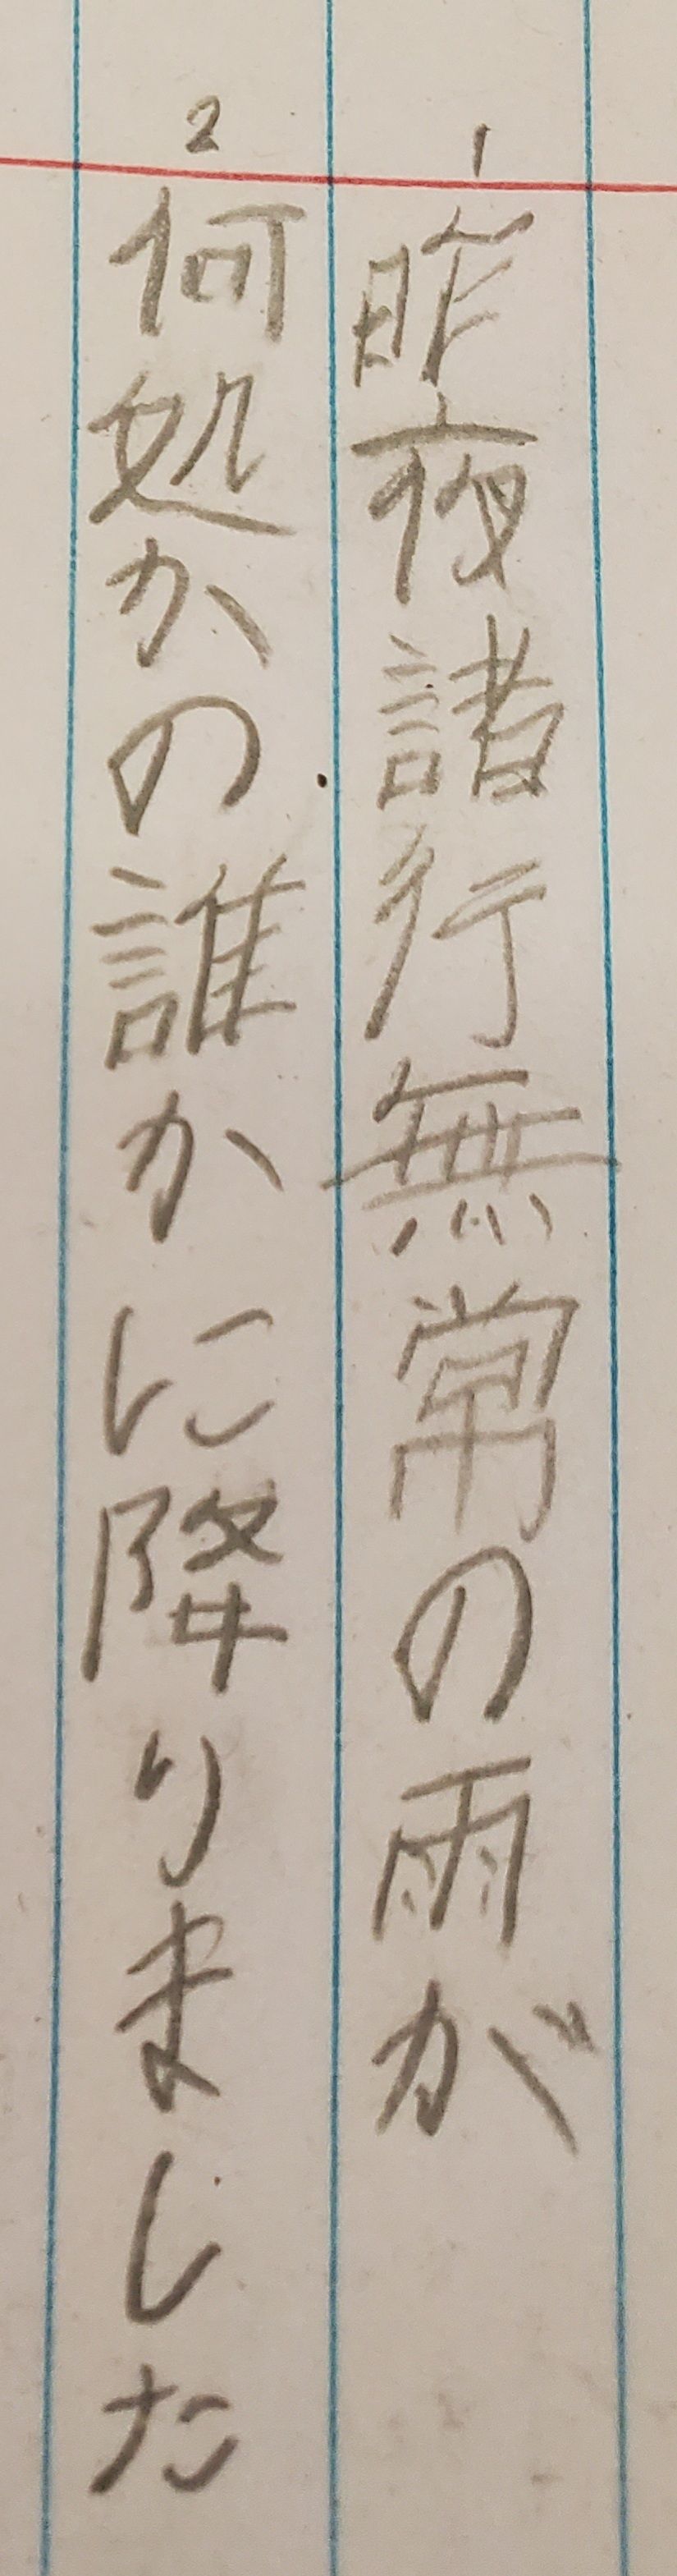 1 昨夜諸行無常の雨が
2 何処かの誰かに降りました